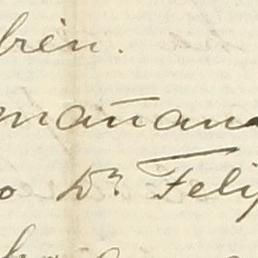 bien.
mañana
o Dn. Felip